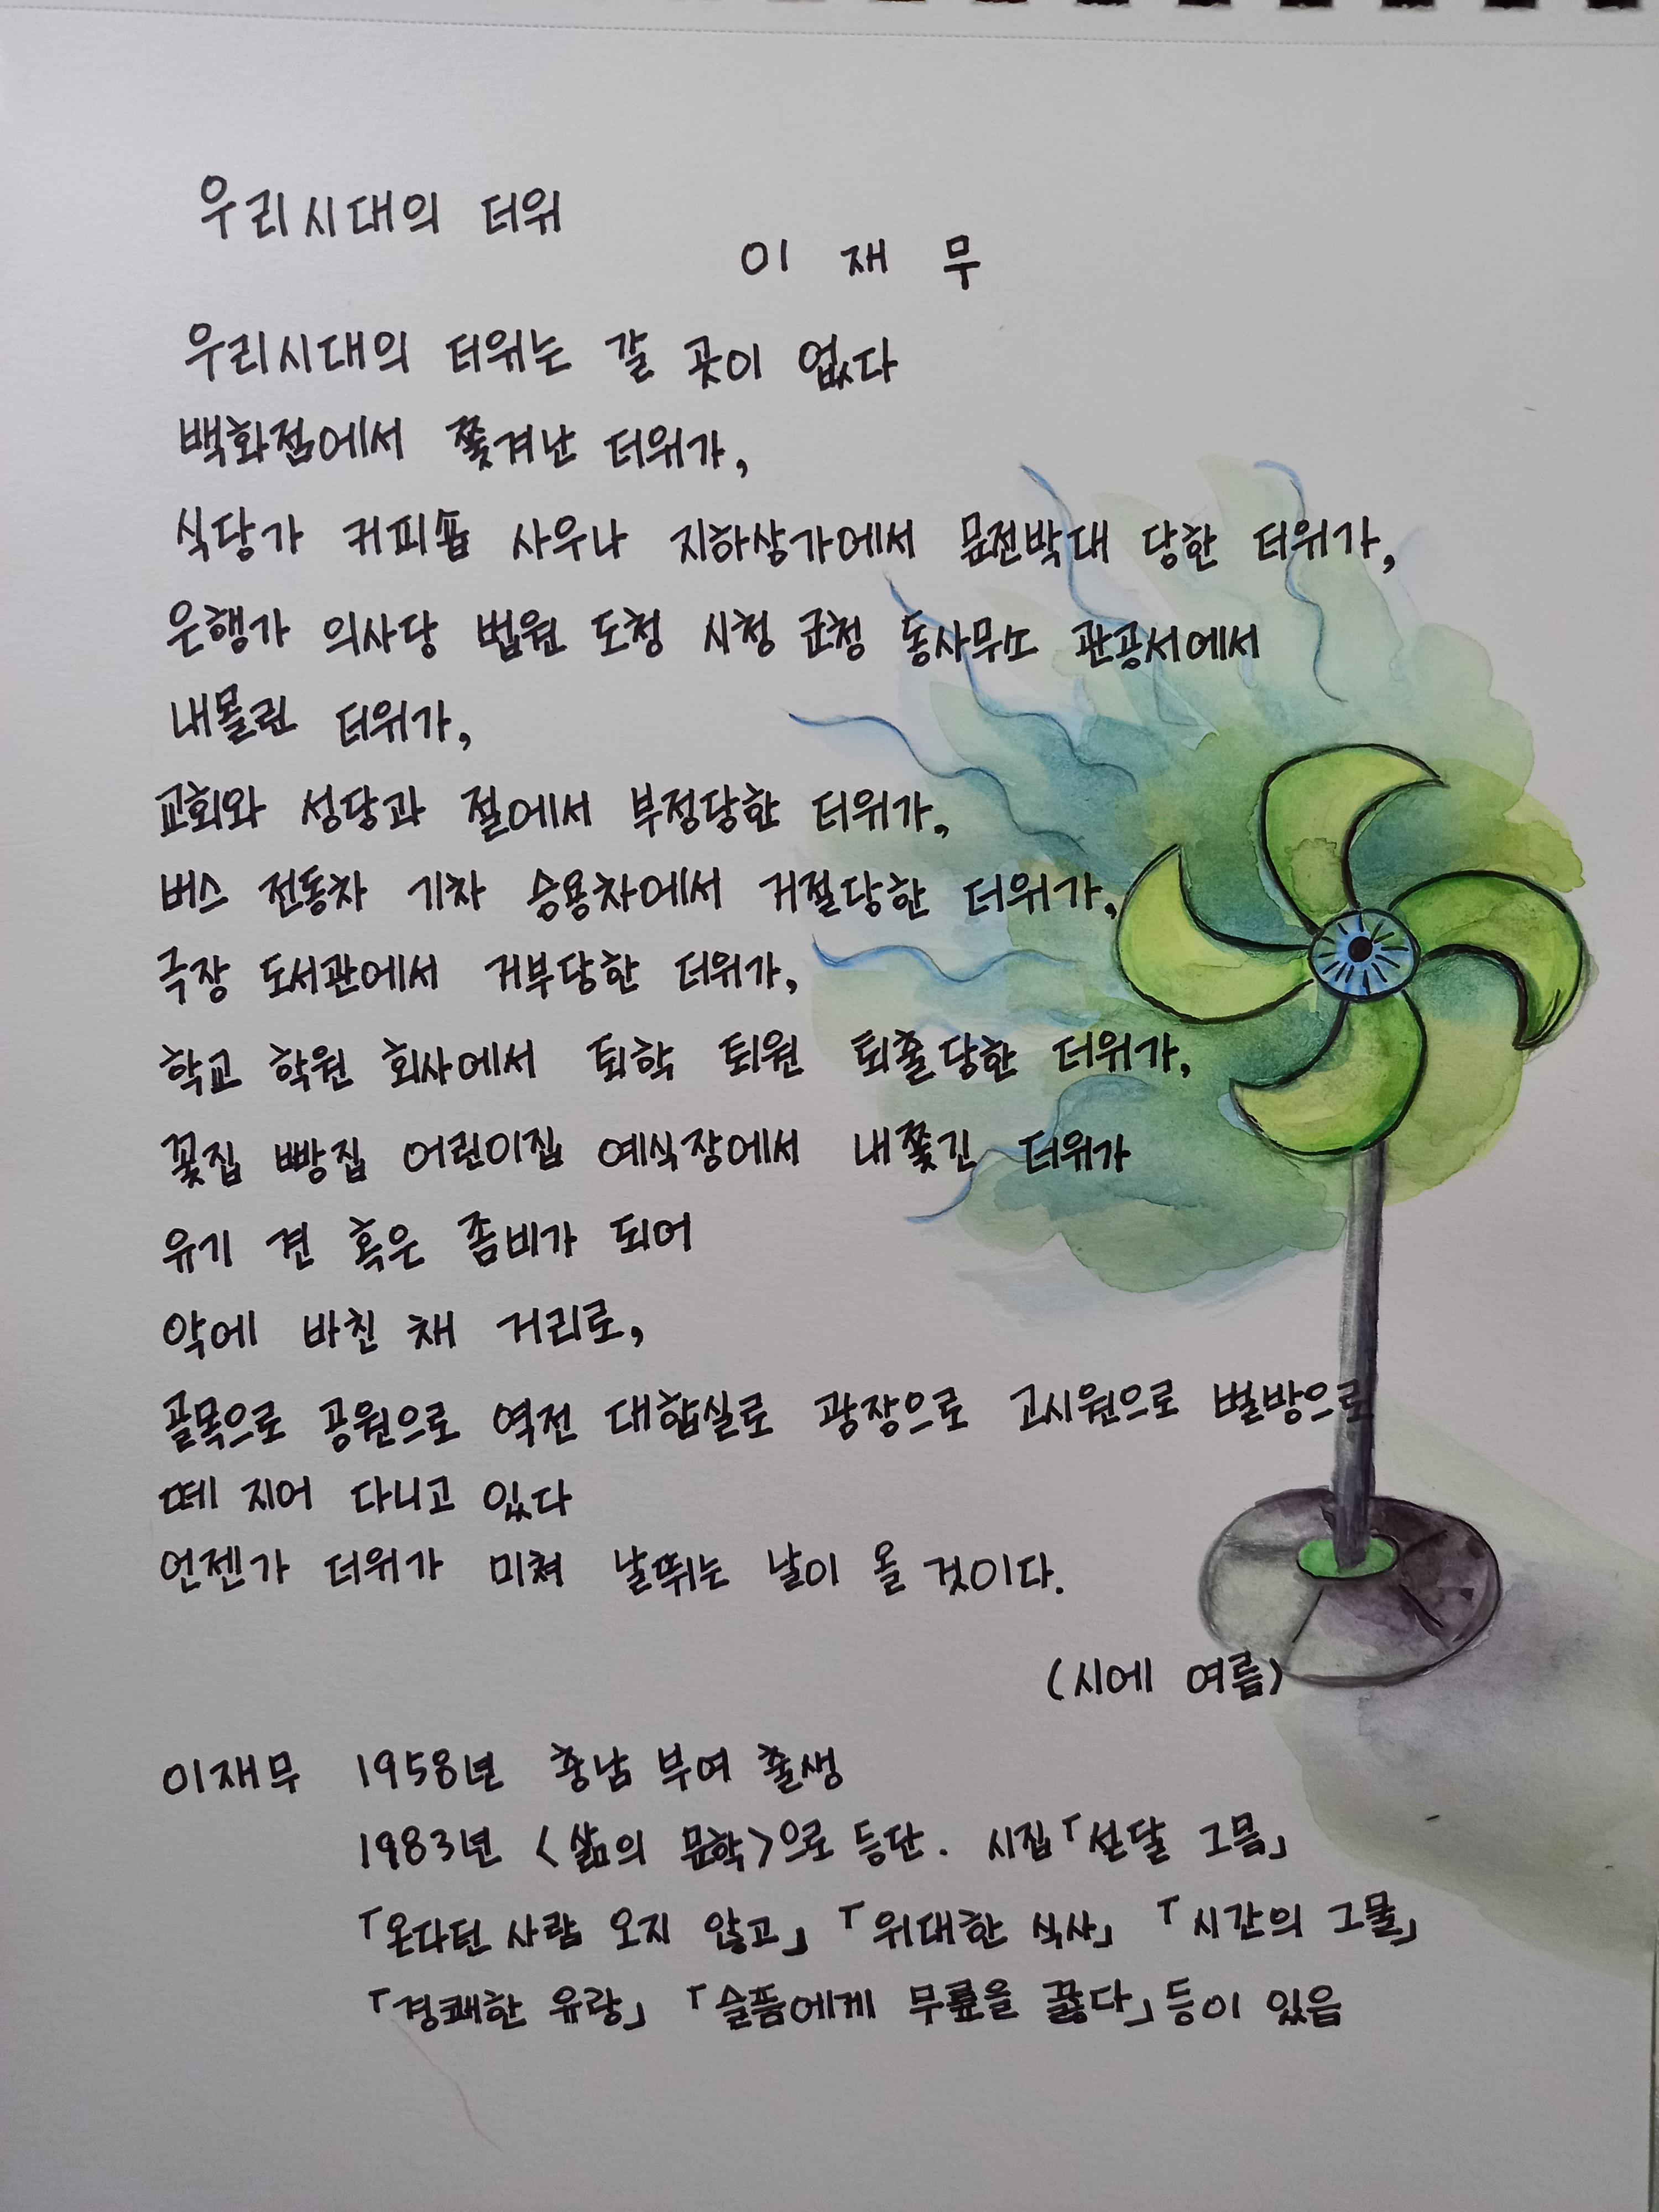 우리시대의 더위
이 재 무
우리시대의 더위는 갈 곳이 없다
백화점에서 쫓겨난 더위가,
식당가 커피숍 사우나 지하상가에서 문전박대 당한 더위가,
은행가 의사당 법원 도청 시청 군청 동사무소 관공서에서
내몰린 더위가,
교회와 성당과 절에서 부정당한 더위가,
버스 전동차 기차 승용차에서 거절당한 더위가,
극장 도서관에서 거부당한 더위가,
학교 학원 회사에서 퇴학 퇴원 퇴출당한 더위가,
꽃집 빵집 어린이집 예식장에서 내쫓긴 더위가
유기 견 혹은 좀비가 되어
악에 바친 채 거리로,
골목으로 공원으로 역전 대합실로 광장으로 고시원으로 벌방으로
떼 지어 다니고 있다
언젠가 더위가 미쳐 날뛰는 날이 올 것이다.
(시에 여름)
이재무 1958년 충남 부여 출생
1983년 <삶의 문학>으로 등단. 시집「섣달 그믐」
「온다던 사람 오지 않고」「위대한 식사」「시간의 그물」
「경쾌한 유랑」「슬픔에게 무릎을 꿇다」등이 있음